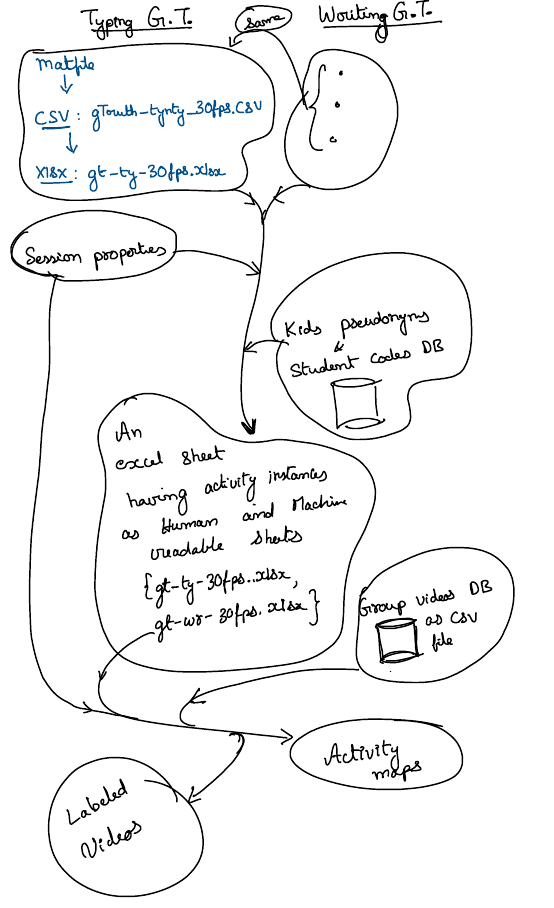 Typing G.T.
same
Writing G.T.
matfile
CSV : gTruth-tynty_30fps.CSV
xlsx : gt-ty-30fps.xlsx
Session properties
Kids pseudonyms
&
Student codes DB
An
excel sheet
having activity instances
as Human and Machine
readable sheets
{gt-ty-30fps..xlsx,
gt-wr-30fps.xlsx}
Group videos DB
as CSV
file
Activity
maps
Labeled
Videos